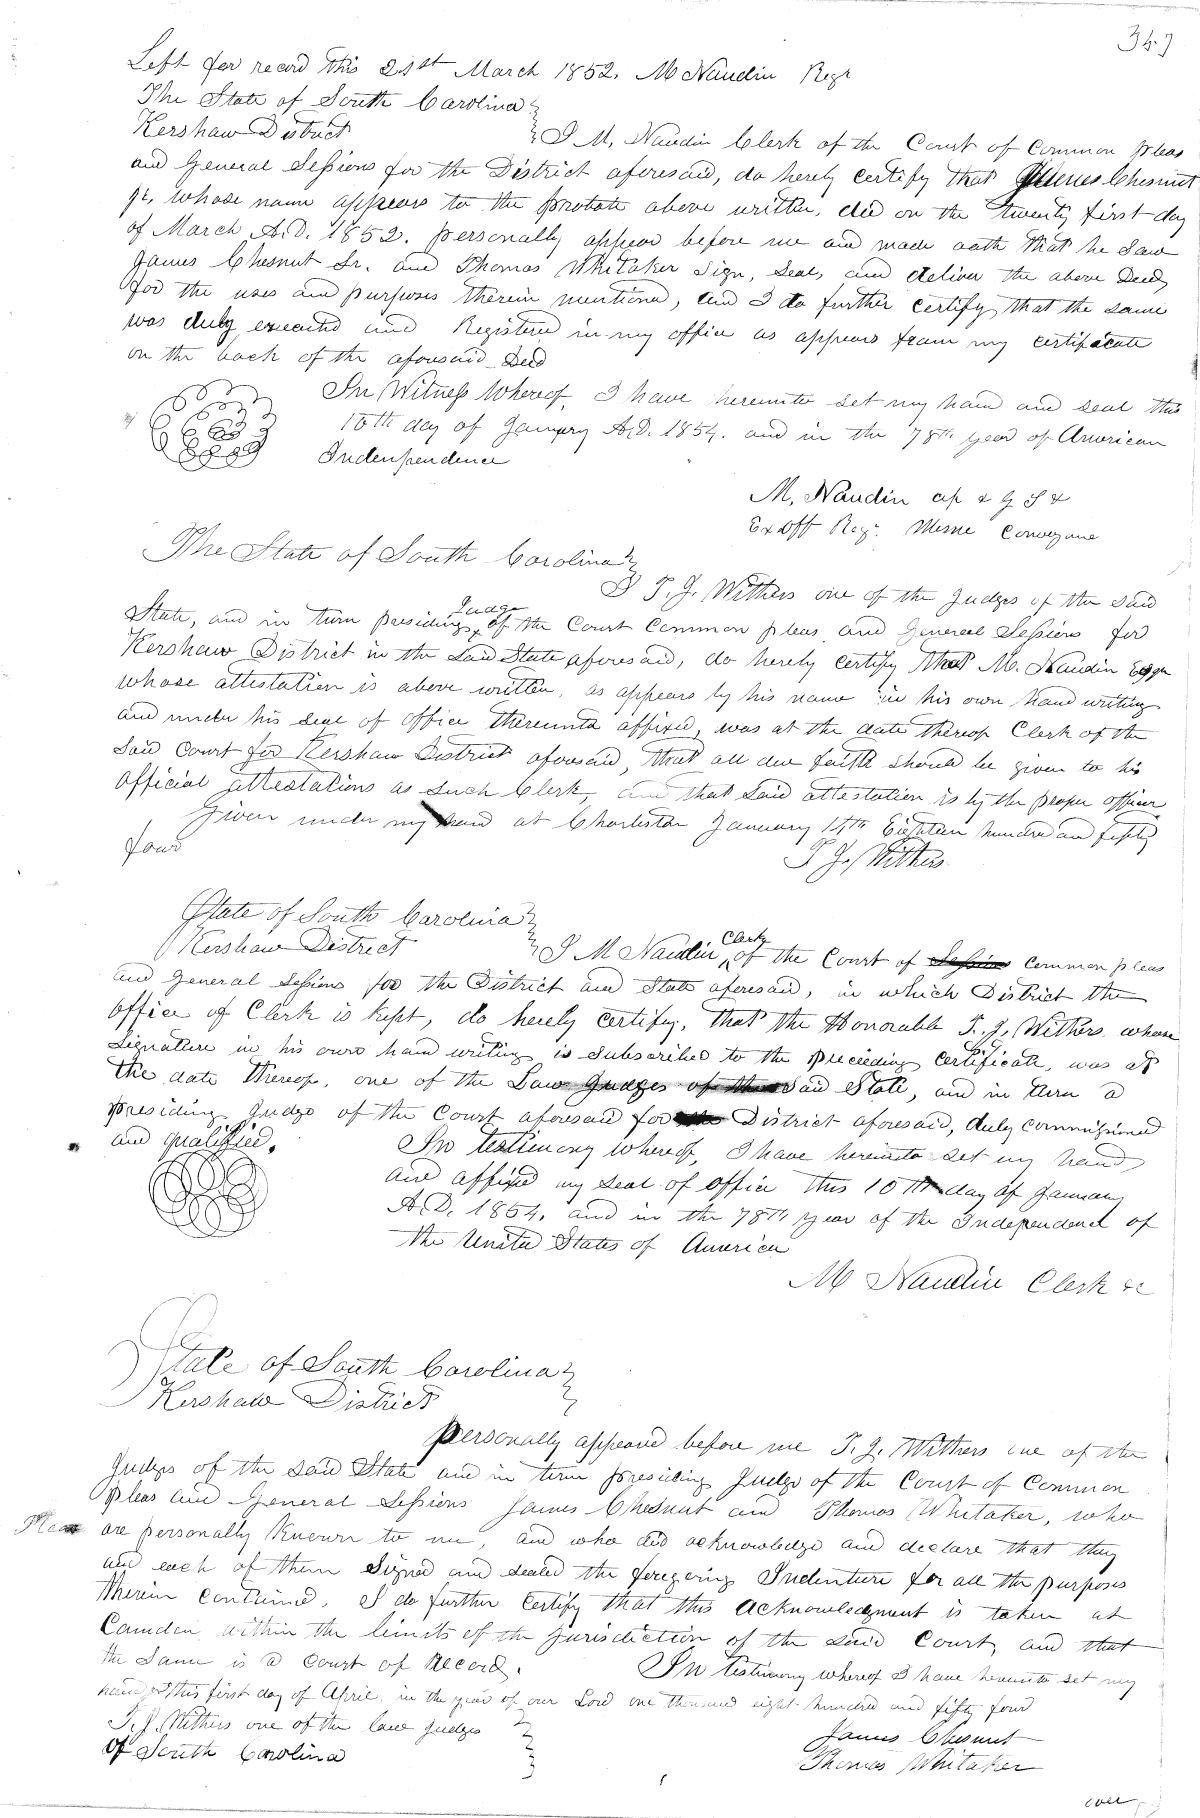 Left for record this 21st March 1852. M Naudin Regr
The State of South Carolina
Kershaw District
I M, Naudin Clerk of the Court of Common pleas
and General Sessions for the District aforesaid, do herely certify that James Chesnut
jr, whose name appears to the probate above written, did on the twenty first day
of March A.D. 1852. personally appear before me and made oath that he saw
James Chesnut Sr. and Thomas Whitaker Sign, Seal, and deliver the above Deed
for the uses and purposes therein mentiond, and I do further certify that the same
was duly executed and Registered in my office as appears from my certificate
on the back of the aforesaid Deed
In Witness Whereof, I have hereunto set my hand and seal this
10th day of January A.D. 1854. and in the 78th year of American
Indenpendence
M, Naudin &
Ex off Reg. Mesne Conveyance
The State of South Carolina
I T. J. Withers one of the Judges of the said
State, and in turn presiding Judge of the Court Common pleas and General Sessions for
Kershaw District in the said State aforesaid, do herely certify that M. Naudin Esqr
whose attestation is above written, as appears by his name in his own hand writing
and under his seal of office thereunto affixed, was at the date thereof Clerk of the
said Court for Kershaw District aforesaid, that all due faith should be given to his
official attestations as such Clerk, and that said attestation is by the proper officer
Given under my hand at Charleston January 14th Eighteen hundred and fifty
four
T. J. Withers.
State of South Carolina
Kershaw District
I M Naudin Clerk of the Court of Sessions Common pleas
and General Sessions for the District and State aforesaid, in which District the
office of Clerk is kept, do herely certify, that the Honorable T. J. Withers whose
signature in his own hand writing is subscribed to the preceeding certificate, was at
the date thereof, one of the Law Judges of the said State, and in turn a
presiding Judge of the Court aforesaid for the District aforesaid, duly commissioned
and qualified.
In testimony whereof, I have hereunto set my hand
and affixed my seal of office this 10th day of January
A.D. 1854. and in the 78th year of the Independence of
the United States of America
M Naudin Clerk &c
State of South Carolina
Kershaw District
Personally appeared before me T. J. Withers one of the
Judges of the said State and in term presiding Judge of the Court of Common
pleas and General Sessions James Chesnut and Thomas Whitaker, who
are personally known to me, and who did acknowledge and declare that they
and each of them Signed and sealed the foregoing Indenture for all the purposes
therein contained, I do further certify that this acknowledgment is taken at
Camden within the limits of the jurisdiction of the said Court, and that
the same is a Court of Record.
In testimony whereof I have hereunto set my
hand this first day of April in the year of our Lord one thousand eight hundred and fifty four
T. J. Withers one of the law judges
of South Carolina
James Chesnut
Thomas Whitaker
over